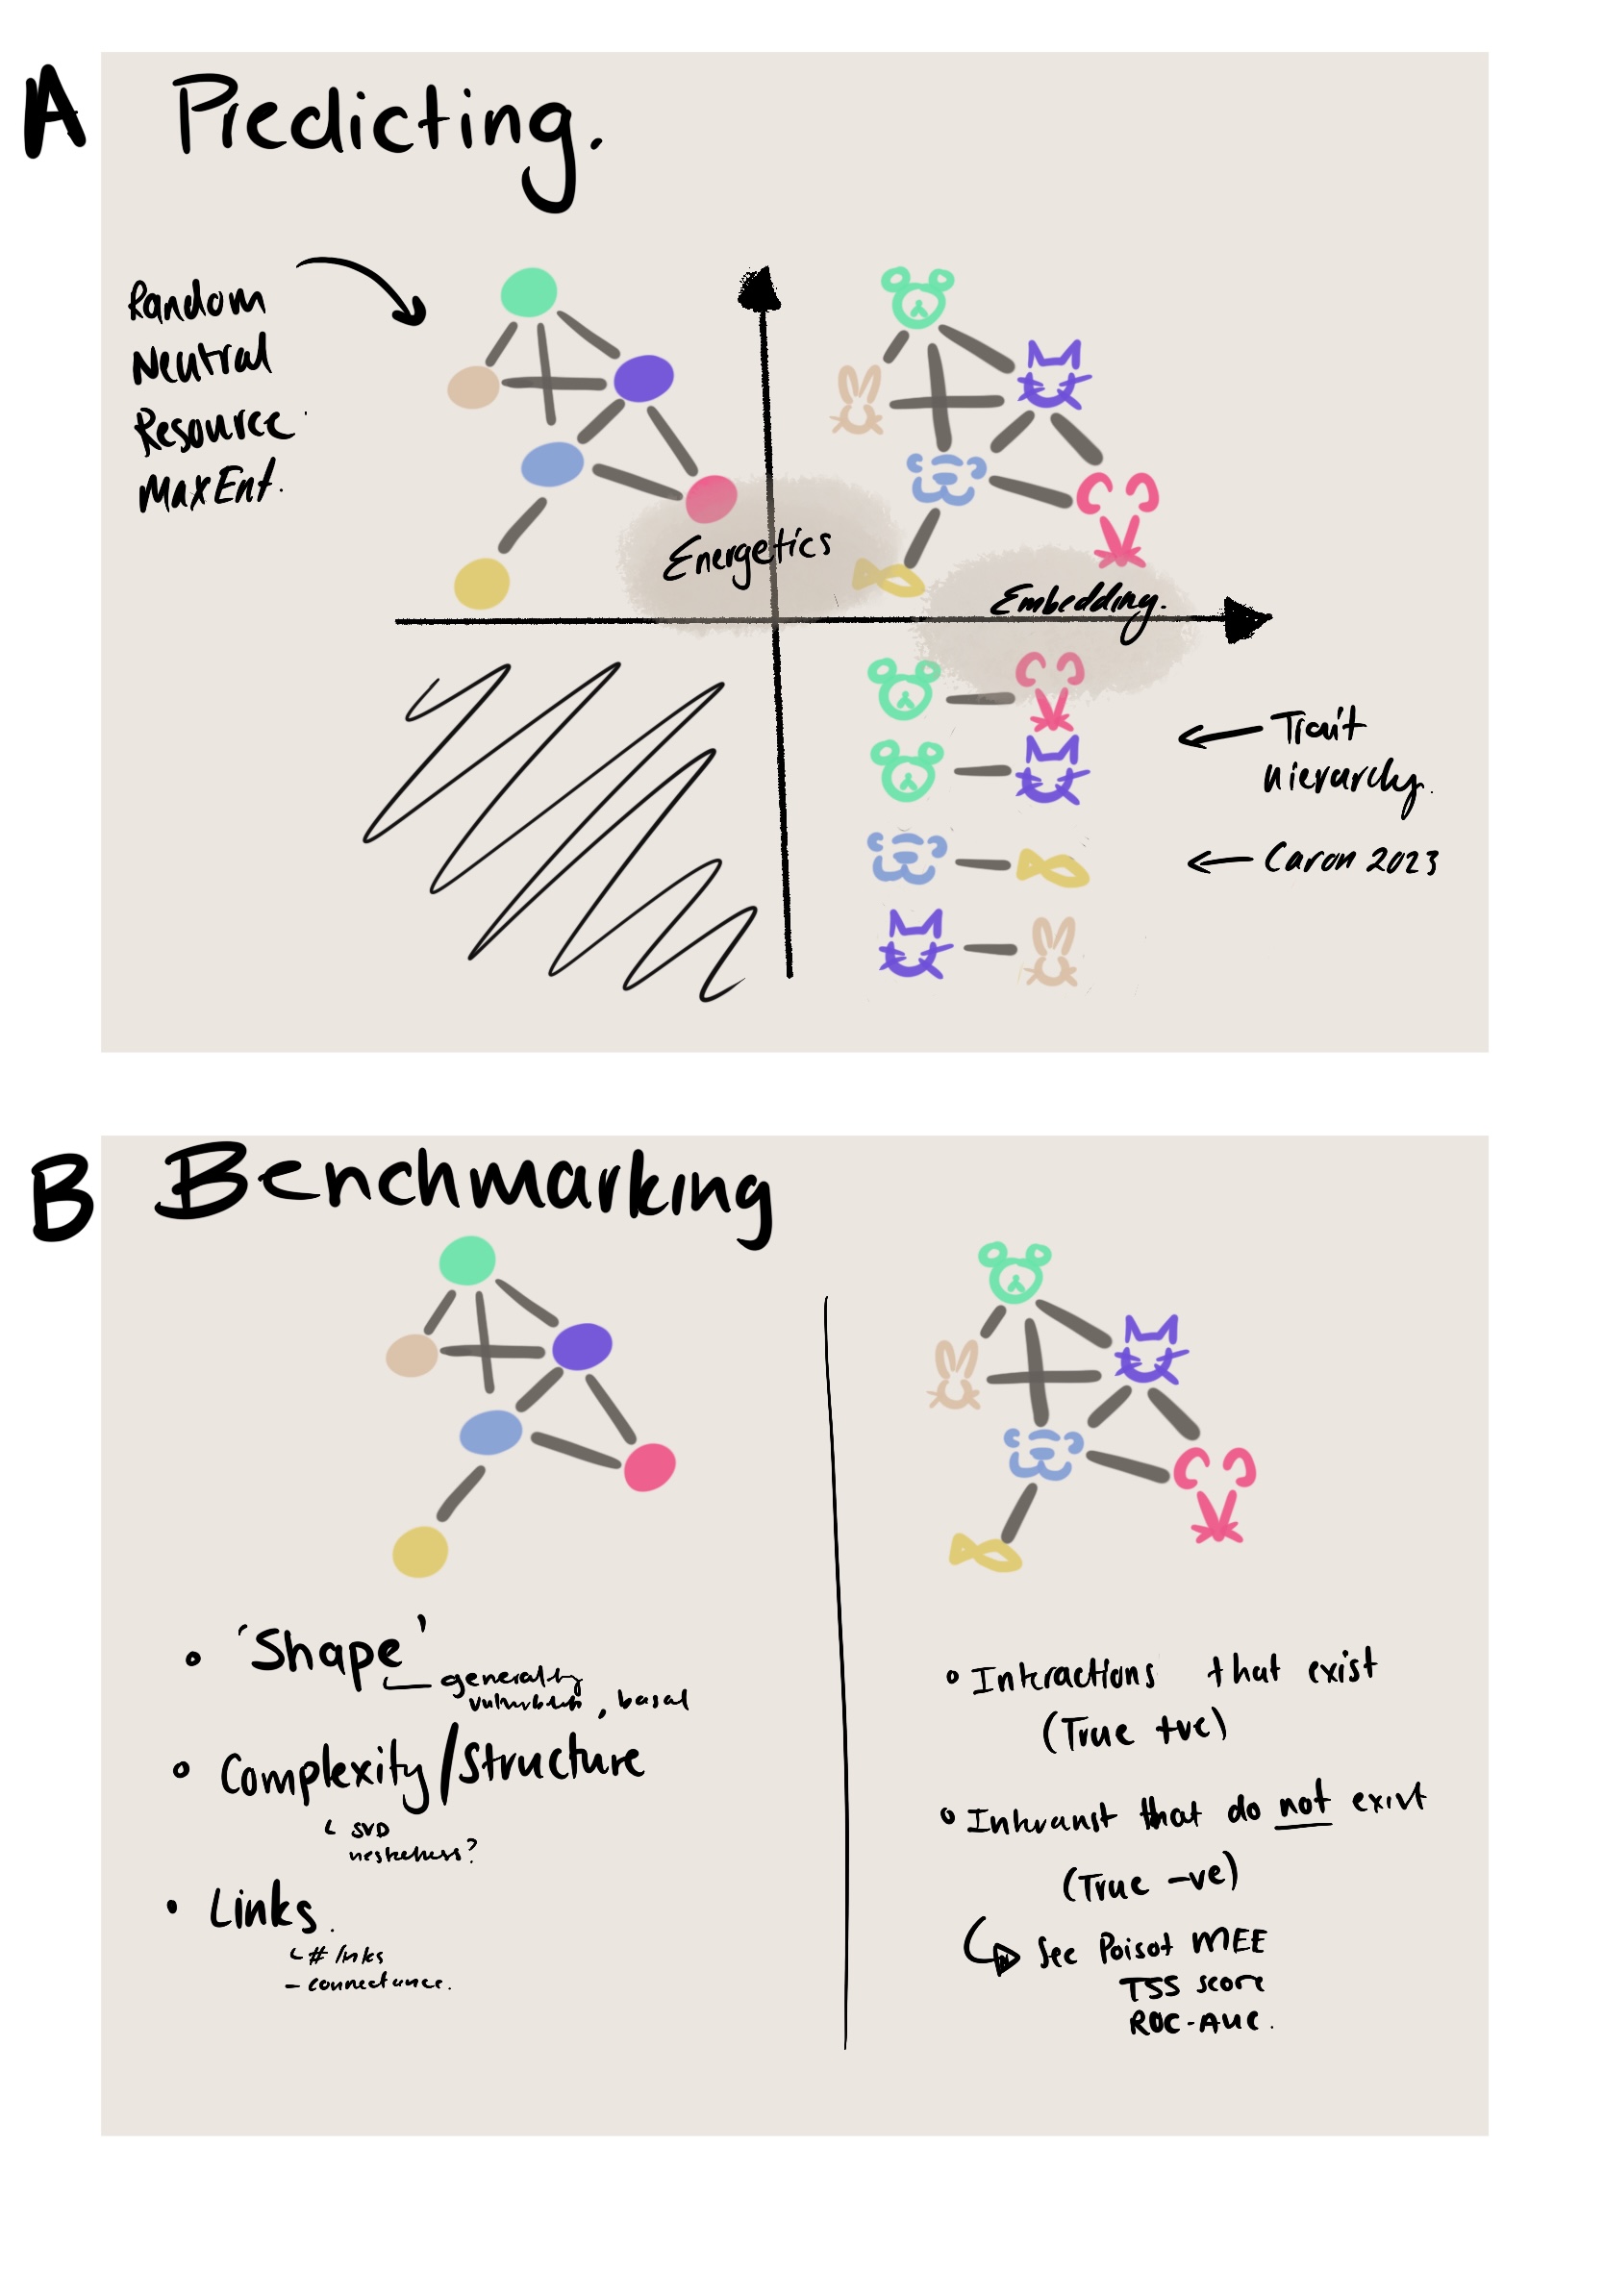 A
Predicting.
Random
Neutral
Resource
MaxEnt.
Energetics
Embedding.
Trait
hierarchy.
Caron 2023
B
Benchmarking
'Shape'
generality
, basal
Complexity/Structure
SVD
nestedness?
Links.
# links
- connectance.
Interactions that exist
(True +ve)
that do not exist
(True -ve)
See Poisot MEE
TSS score
ROC-AUC.